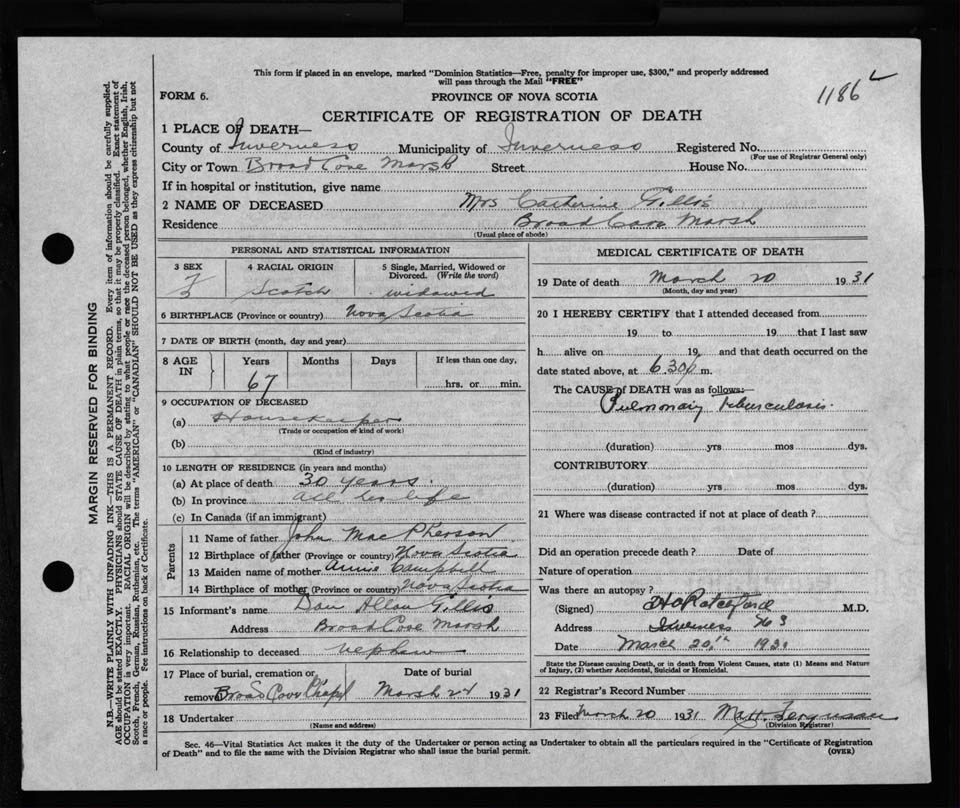 This form if placed in an envelope, marked "Dominion Statistics—Free, penalty for improper use, $300," and properly addressed
will pass through the Mail "FREE"
1186
FORM 6.
PROVINCE OF NOVA SCOTIA
CERTIFICATE OF REGISTRATION OF DEATH
1 PLACE OF DEATH—
County of Inverness Municipality of Inverness Registered No.
(For use of Registrar General only)
City or Town Broad Cove Marsh Street House No.
If in hospital or institution, give name
2 NAME OF DECEASED Mrs Catherine Gillis
Residence Broad Cove Marsh
(Usual place of abode)
PERSONAL AND STATISTICAL INFORMATION
3 SEX 4 RACIAL ORIGIN 5 Single, Married, Widowed or Divorced. (Write the word)
F Scotch widowed
6 BIRTHPLACE (Province or country) Nova Scotia
7 DATE OF BIRTH (month, day and year)
8 AGE IN Years Months Days If less than one day,
67 hrs. or min.
9 OCCUPATION OF DECEASED
(a) Housekeeper
(Trade or occupation or kind of work)
(b)
(Kind of industry)
10 LENGTH OF RESIDENCE (in years and months)
(a) At place of death 30 years.
(b) In province all her life
(c) In Canada (if an immigrant)
Parents
11 Name of father John Mac Pherson
12 Birthplace of father (Province or country) Nova Scotia
13 Maiden name of mother Annie Campbell
14 Birthplace of mother (Province or country) Nova Scotia
15 Informant's name Dan Allan Gillis
Address Broad Cove Marsh
16 Relationship to deceased nephew
17 Place of burial, cremation or removal Broad Cove Chapel Date of burial March 24 1931
18 Undertaker
(Name and address)
MEDICAL CERTIFICATE OF DEATH
19 Date of death March 20 1931
(Month, day and year)
20 I HEREBY CERTIFY that I attended deceased from
19 to 19 that I last saw
h alive on 19, and that death occurred on the
date stated above, at 6.30 p m.
The CAUSE of DEATH was as follows:—
Pulmonary Tuberculosis.
(duration) yrs mos dys.
CONTRIBUTORY
(duration) yrs. mos. dys.
21 Where was disease contracted if not at place of death?
Did an operation precede death? Date of
Nature of operation
Was there an autopsy?
(Signed) M.D.
Address Inverness N S
Date March 20th 1931
State the Disease causing Death, or in death from Violent Causes, state (1) Means and Nature
of Injury, (2) whether Accidental, Suicidal or Homicidal.
22 Registrar's Record Number
23 Filed March 20 1931 Ferguson
(Division Registrar)
Sec. 46—Vital Statistics Act makes it the duty of the Undertaker or person acting as Undertaker to obtain all the particulars required in the "Certificate of Registration
of Death" and to file the same with the Division Registrar who shall issue the burial permit. (OVER)
MARGIN RESERVED FOR BINDING
N.B.—WRITE PLAINLY WITH UNFADING INK—THIS IS A PERMANENT RECORD. Every item of information should be carefully supplied.
AGE should be stated EXACTLY. PHYSICIANS should STATE CAUSE OF DEATH in plain terms, so that it may be properly classified. Exact statement of
OCCUPATION is very important. RACIAL ORIGIN will be described by stating to what people or race the deceased person belonged, whether English, Irish,
Scotch, French, German, Russian, Ruthenian, etc. The terms "AMERICAN" or "CANADIAN" SHOULD NOT BE USED as they express citizenship but not
a race or people. See instructions on back of Certificate.